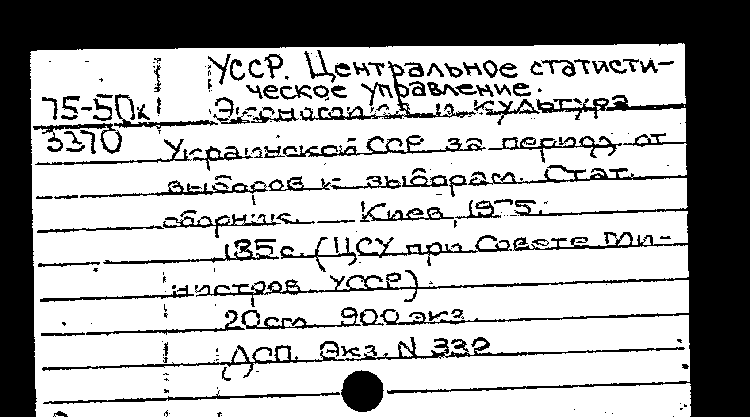 УССР. Центральное статисти-
ческое управление.
75-50к Экономика и культура
3370 Украинской ССР за период от
выборов к выборам. Стат.
сборник. Киев, 1975.
185 с. (ЦСУ при Совете Ми-
нистров УССР)
20 см. 900 экз.
ДСП. Экз. N 339